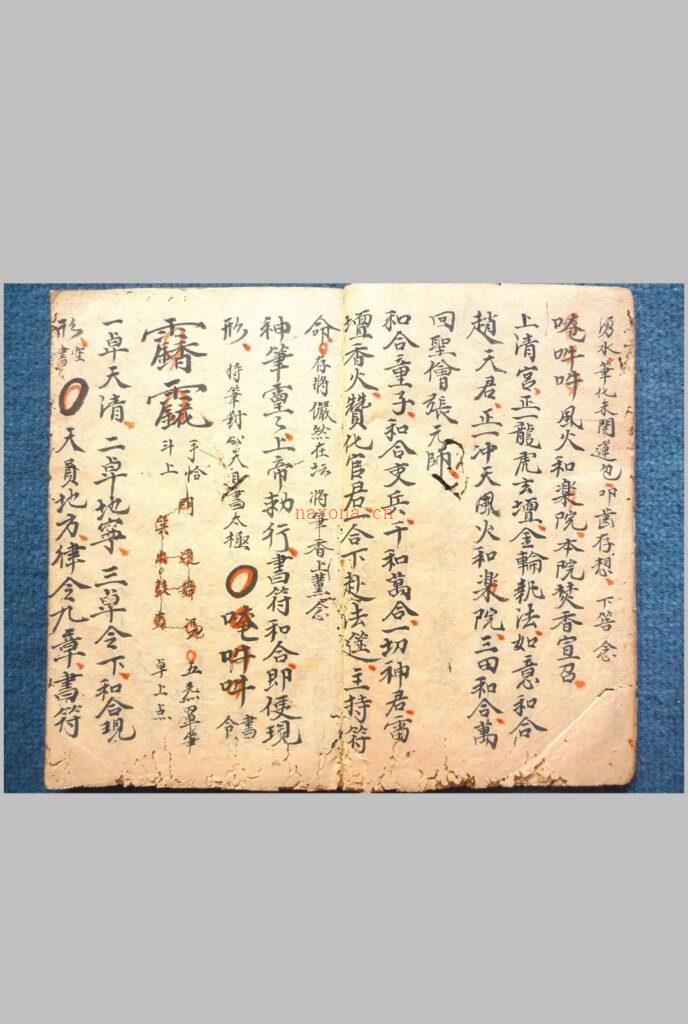 湧水筆化未開運包叩齒存想、下答念
唵吽吽、風火和楽院、本院焚香宣召
上清宮、正一龍虎玄壇金輪執法如意和合
趙天君、正一冲天風火和楽院、三田和合萬
回聖僧張元帥、
和合童子、和合吏兵、千和萬合、一切神君、雷
壇香火、贊化官君、合下赴法筵、主持符
命、存将儼然在坛 将筆香上薰念
神筆靈之、上帝勅行、書符和合即便現
形、持筆對 天目書太極 唵吽吽 書令
手恰
斗上
五 罩筆
卓上点
一卓天清、二卓地寧、三卓令下、和合現
形、書空 天員地方、律令九章、書符
nayona.cn